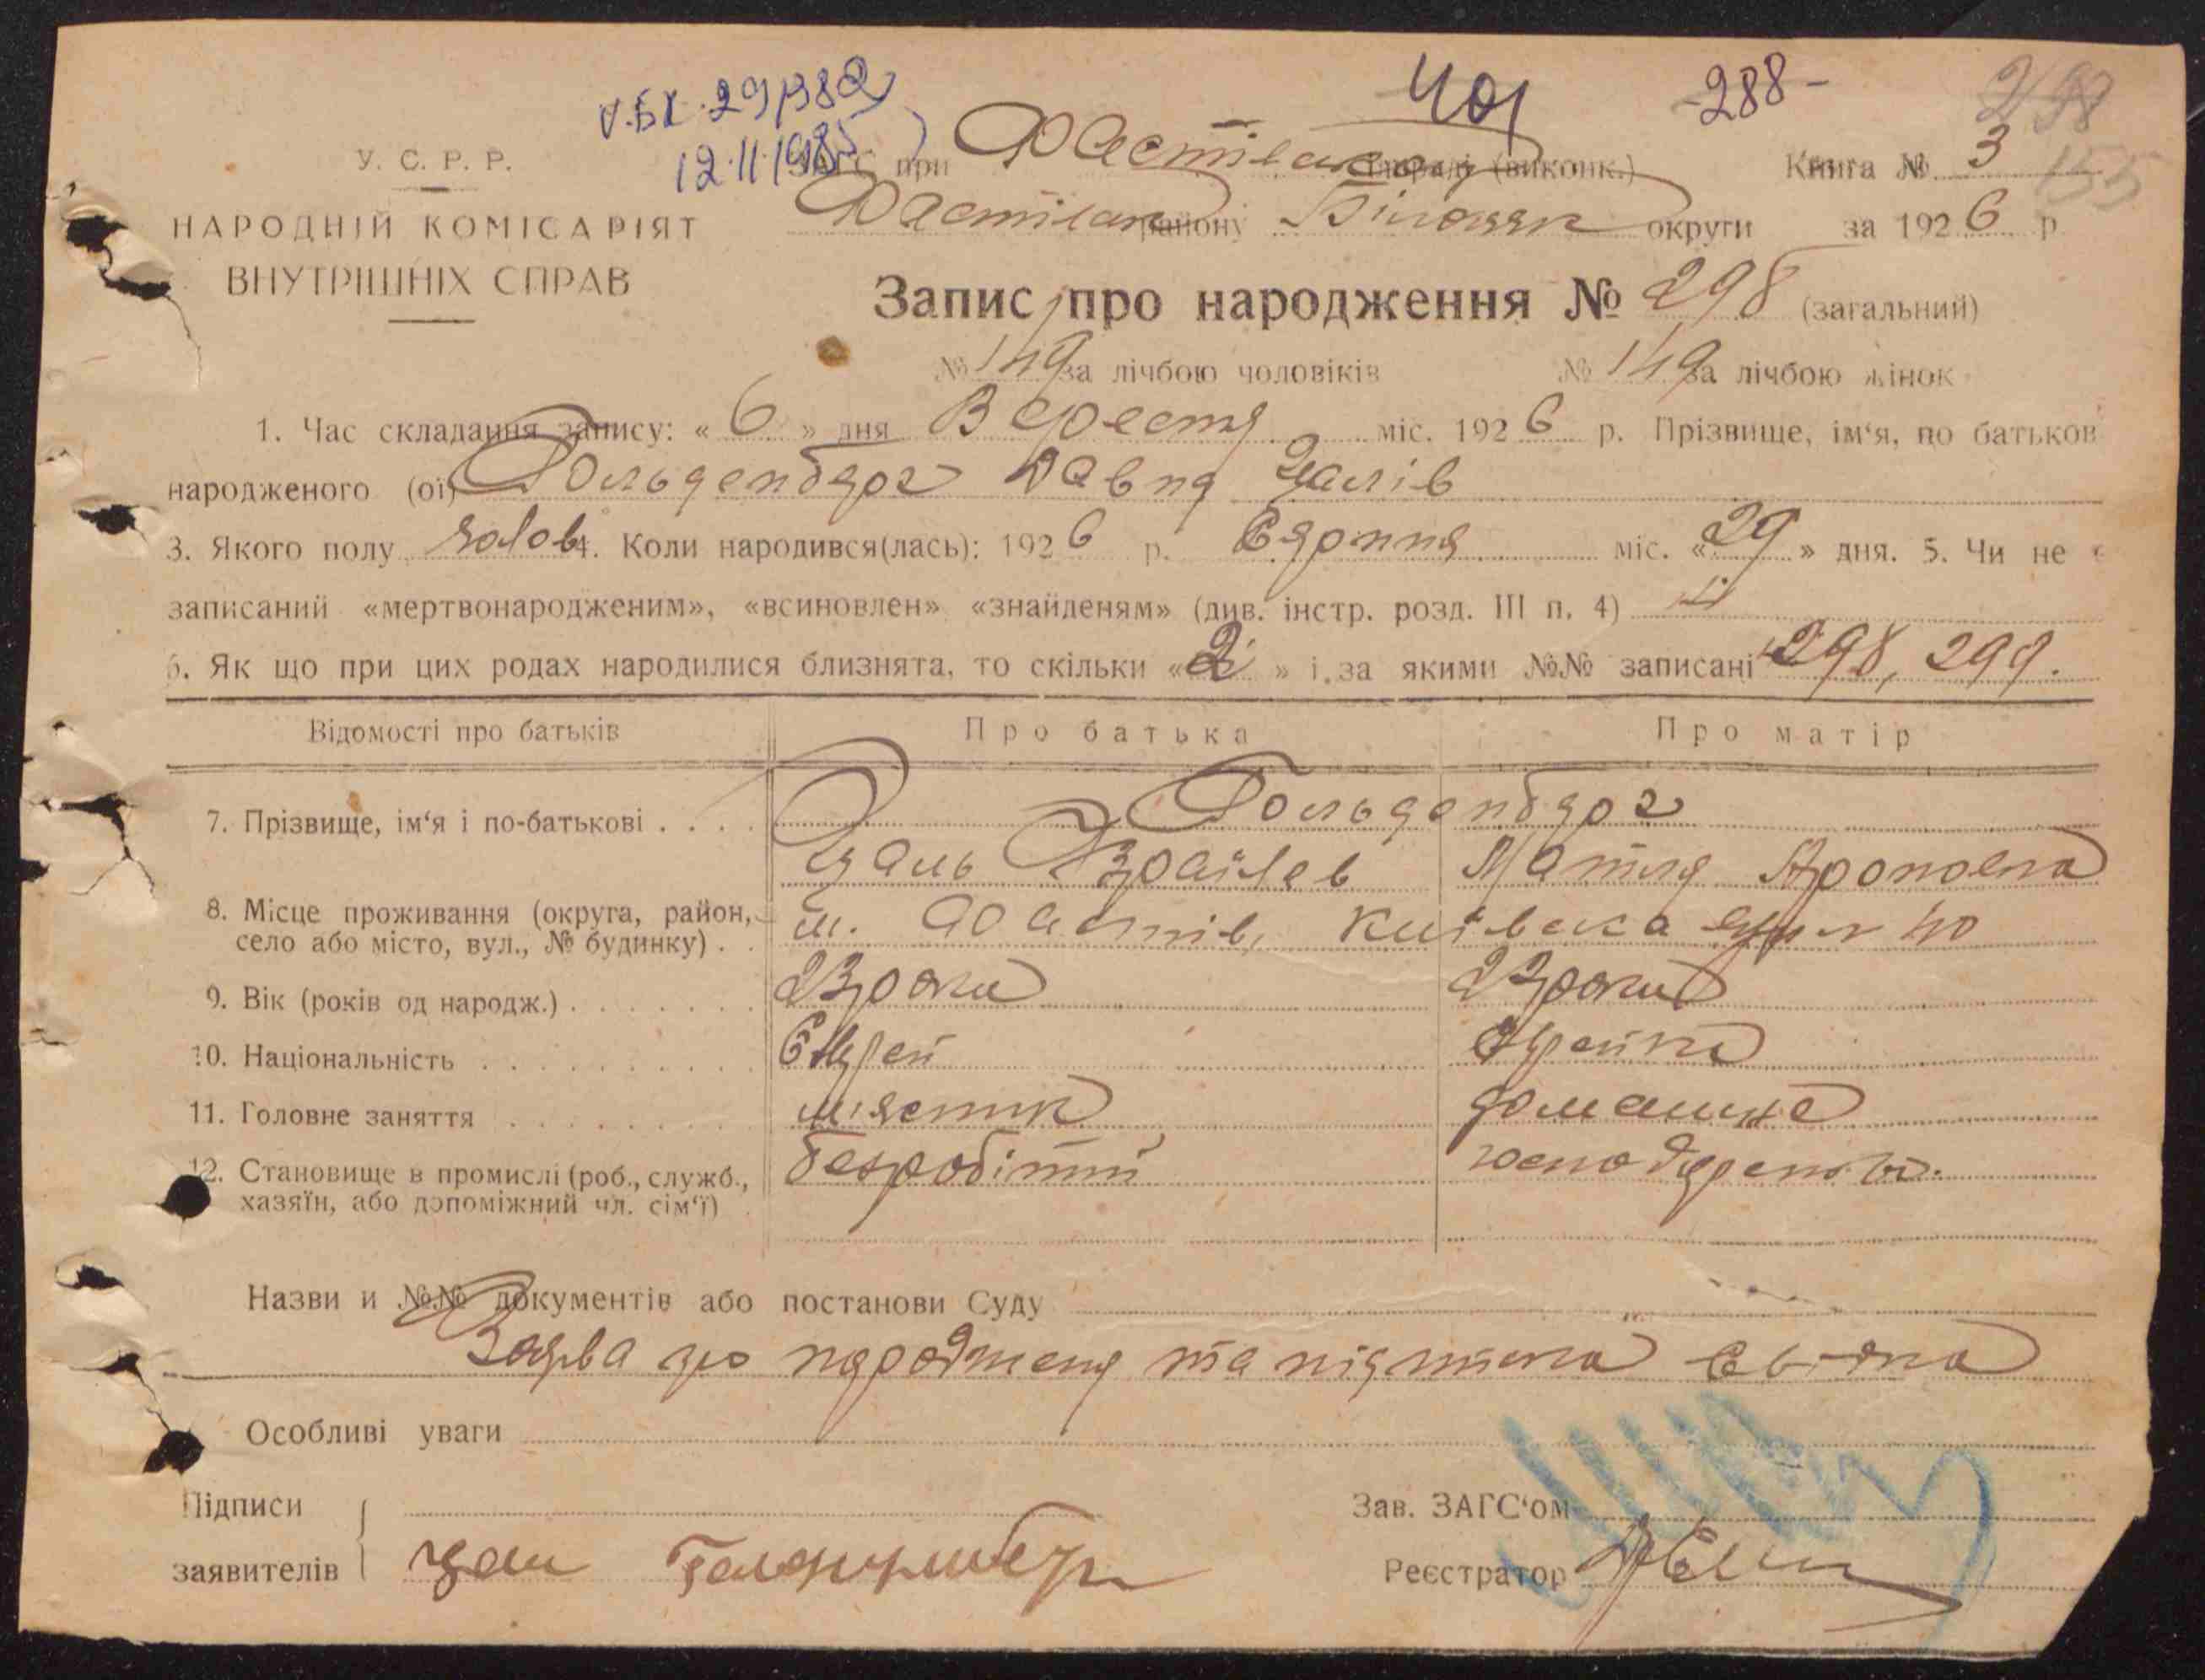 401 -288- 298
12.11.1985
У. С. Р. Р. при Книга № 3 155
НАРОДНІЙ КОМІСАРІЯТ району округи за 1926 р.
ВНУТРІШНІХ СПРАВ
Запис про народження № 298 (загальний)
№ 149 за лічбою чоловіків № 149 за лічбою жінок
1. Час складання запису: « 6 » дня Вересня міс. 1926 р. Прізвище, ім‘я, по батьков
народженого (ої) Гольденберг Давид
3. Якого полу чолов 4. Коли народився(лась): 1926 р. Серпня міс. « 29 » дня. 5. Чи не є
записаний «мертвонародженим», «всиновлен» «знайденям» (див. інстр. розд. III п. 4)
6. Як що при цих родах народилися близнята, то скільки « 2 » і за якими №№ записані 298, 299.
Відомості про батьків Про батька Про матір
7. Прізвище, ім‘я і по-батькові . . . . Гольденберг
8. Місце проживання (округа, район, м. Фастів, Київська 40
село або місто, вул., № будинку) . .
9. Вік (років од народж.) . . . . . . . 23 роки 23 роки
10. Національність . . . . . . . . . . Єврей Єврейка
11. Головне заняття . . . . . . . . домашнє
12. Становище в промислі (роб., служб., безробітний
хазяїн, або допоміжний чл. сім‘ї)
Назви и №№ документів або постанови Суду
Заява про народження та
Особливі уваги
Підписи Зав. ЗАГС‘ом
заявителів Реєстратор